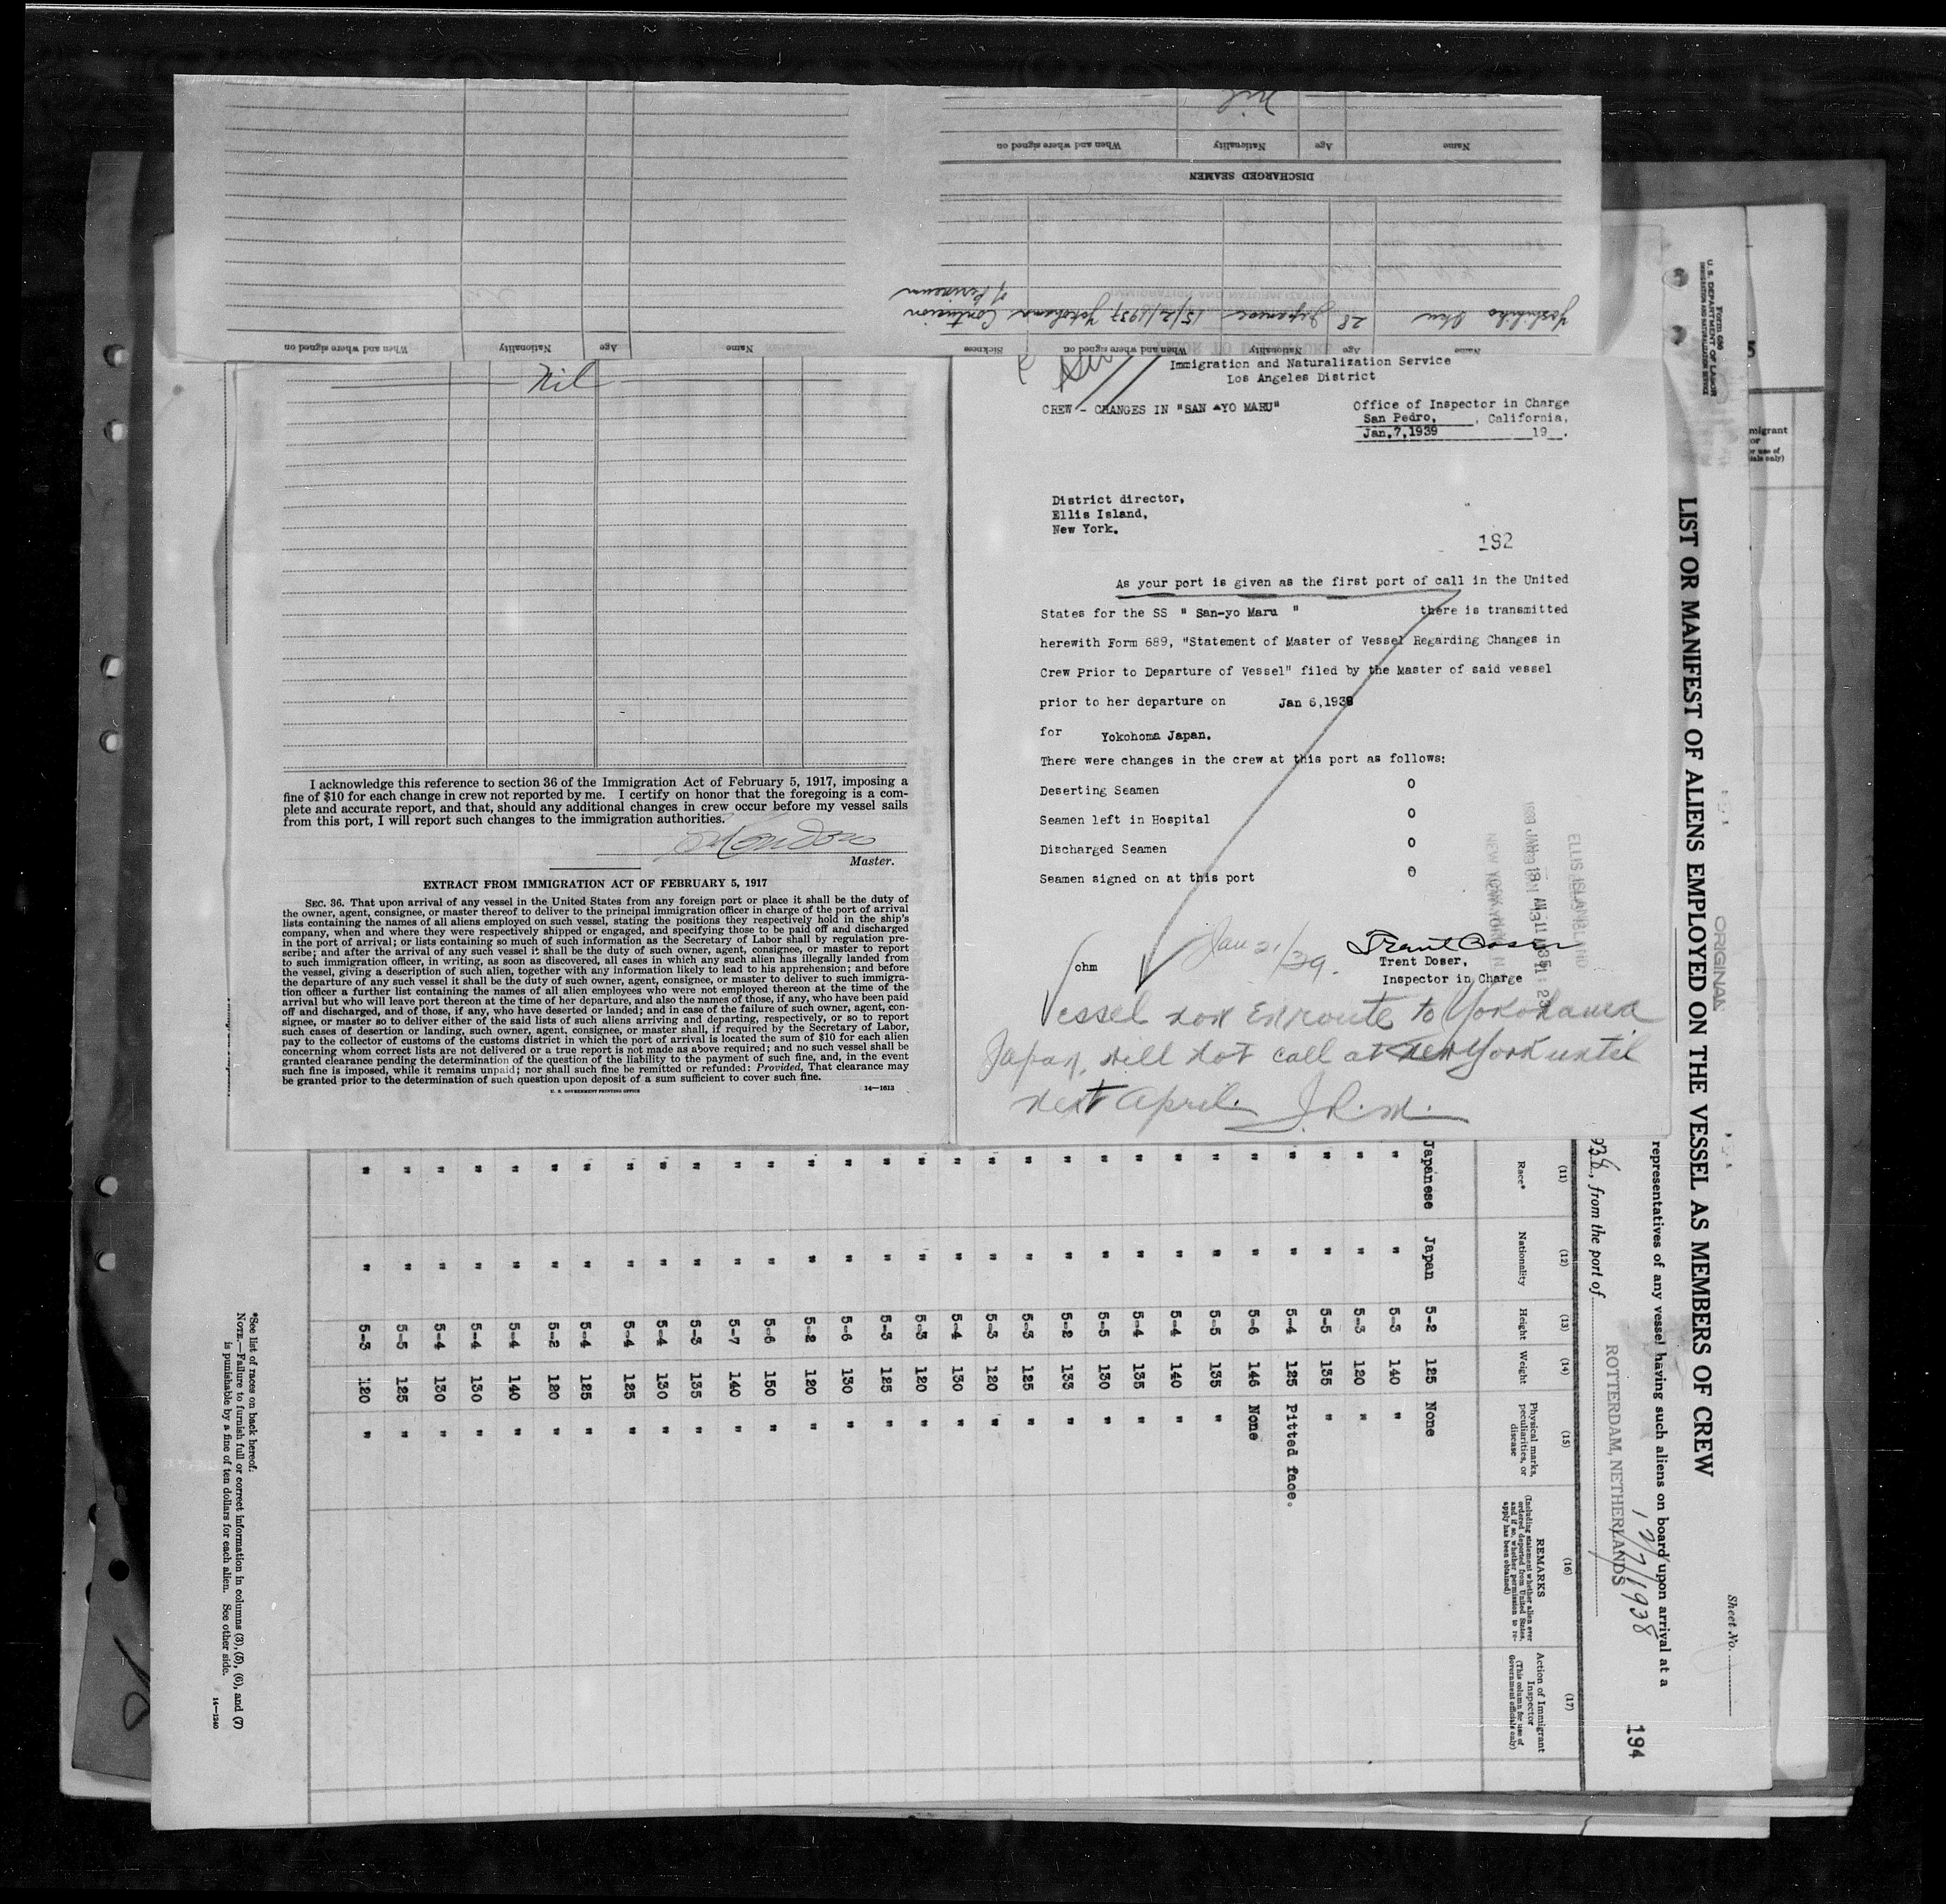 Name Age Nationality When and where signed on
Nil
DISCHARGED SEAMEN
Name Age Nationality When and where signed on Sickness
Yoshihiko 28 Japanese 15/2/1937 Yokohama Contusion
of Perineum
Name Age Nationality When and where signed on
Nil
I acknowledge this reference to section 36 of the Immigration Act of February 5, 1917, imposing a
fine of $10 for each change in crew not reported by me. I certify on honor that the foregoing is a com-
plete and accurate report, and that, should any additional changes in crew occur before my vessel sails
from this port, I will report such changes to the immigration authorities.
Master.
EXTRACT FROM IMMIGRATION ACT OF FEBRUARY 5, 1917
SEC. 36. That upon arrival of any vessel in the United States from any foreign port or place it shall be the duty of
the owner, agent, consignee, or master thereof to deliver to the principal immigration officer in charge of the port of arrival
lists containing the names of all aliens employed on such vessel, stating the positions they respectively hold in the ship's
company, when and where they were respectively shipped or engaged, and specifying those to be paid off and discharged
in the port of arrival; or lists containing so much of such information as the Secretary of Labor shall by regulation pre-
scribe; and after the arrival of any such vessel it shall be the duty of such owner, agent, consignee, or master to report
to such immigration officer, in writing, as soon as discovered, all cases in which any such alien has illegally landed from
the vessel, giving a description of such alien, together with any information likely to lead to his apprehension; and before
the departure of any such vessel it shall be the duty of such owner, agent, consignee, or master to deliver to such immigra-
tion officer a further list containing the names of all alien employees who were not employed thereon at the time of the
arrival but who will leave port thereon at the time of her departure, and also the names of those, if any, who have been paid
off and discharged, and of those, if any, who have deserted or landed; and in case of the failure of such owner, agent, con-
signee, or master so to deliver either of the said lists of such aliens arriving and departing, respectively, or so to report
such cases of desertion or landing, such owner, agent, consignee, or master shall, if required by the Secretary of Labor,
pay to the collector of customs of the customs district in which the port of arrival is located the sum of $10 for each alien
concerning whom correct lists are not delivered or a true report is not made as above required; and no such vessel shall be
granted clearance pending the determination of the question of the liability to the payment of such fine, and, in the event
such fine is imposed, while it remains unpaid; nor shall such fine be remitted or refunded: Provided, That clearance may
be granted prior to the determination of such question upon deposit of a sum sufficient to cover such fine.
U. S. GOVERNMENT PRINTING OFFICE 14—1613
Immigration and Naturalization Service
Los Angeles District
CREW - CHANGES IN "SAN YO MARU"
Office of Inspector in Charge
San Pedro, , California,
Jan,7,1939 19 .
District director,
Ellis Island,
New York.
192
As your port is given as the first port of call in the United
States for the SS " San-yo Maru " there is transmitted
herewith Form 689, "Statement of Master of Vessel Regarding Changes in
Crew Prior to Departure of Vessel" filed by the Master of said vessel
prior to her departure on Jan 6,1939
for Yokohoma Japan.
There were changes in the crew at this port as follows:
Deserting Seamen 0
Seamen left in Hospital 0
Discharged Seamen 0
Seamen signed on at this port 0
ELLIS ISLAND
NEW YORK
Jan 21/39.
ohm
Trent Doser,
Inspector in Charge
Vessel now Enroute to Yokohama
Japan, will not call at New York until
next April. J.R.M.
Form 680
U. S. DEPARTMENT OF LABOR
IMMIGRATION AND NATURALIZATION SERVICE
ORIGINAL
Sheet No.
LIST OR MANIFEST OF ALIENS EMPLOYED ON THE VESSEL AS MEMBERS OF CREW
representatives of any vessel having such aliens on board upon arrival at a
12/7/1938
194
938, from the port of ROTTERDAM, NETHERLANDS
(11) (12) (13) (14) (15) (16) (17)
Race* Nationality Height Weight Physical marks, peculiarities, or disease REMARKS (Including statement whether alien ever ordered deported from United States, and if so, whether permission to reapply has been obtained) Action of Immigrant Inspector (This column for use of Government officials only)
Japanese Japan 5-2 125 None
" " 5-3 140 "
" " 5-3 120 "
" " 5-5 135 "
" " 5-4 125 Pitted face.
" " 5-6 146 None
" " 5-5 135 "
" " 5-4 140 "
" " 5-4 135 "
" " 5-5 130 "
" " 5-2 133 "
" " 5-3 125 "
" " 5-3 120 "
" " 5-4 130 "
" " 5-3 120 "
" " 5-3 125 "
" " 5-6 130 "
" " 5-2 120 "
" " 5-6 150 "
" " 5-7 140 "
" " 5-3 135 "
" " 5-4 130 "
" " 5-4 125 "
" " 5-4 125 "
" " 5-2 120 "
" " 5-4 140 "
" " 5-4 130 "
" " 5-4 130 "
" " 5-5 125 "
" " 5-3 120 "
*See list of races on back hereof.
NOTE.—Failure to furnish full or correct information in columns (3), (5), (6), and (7)
is punishable by a fine of ten dollars for each alien. See other side.
14—1240